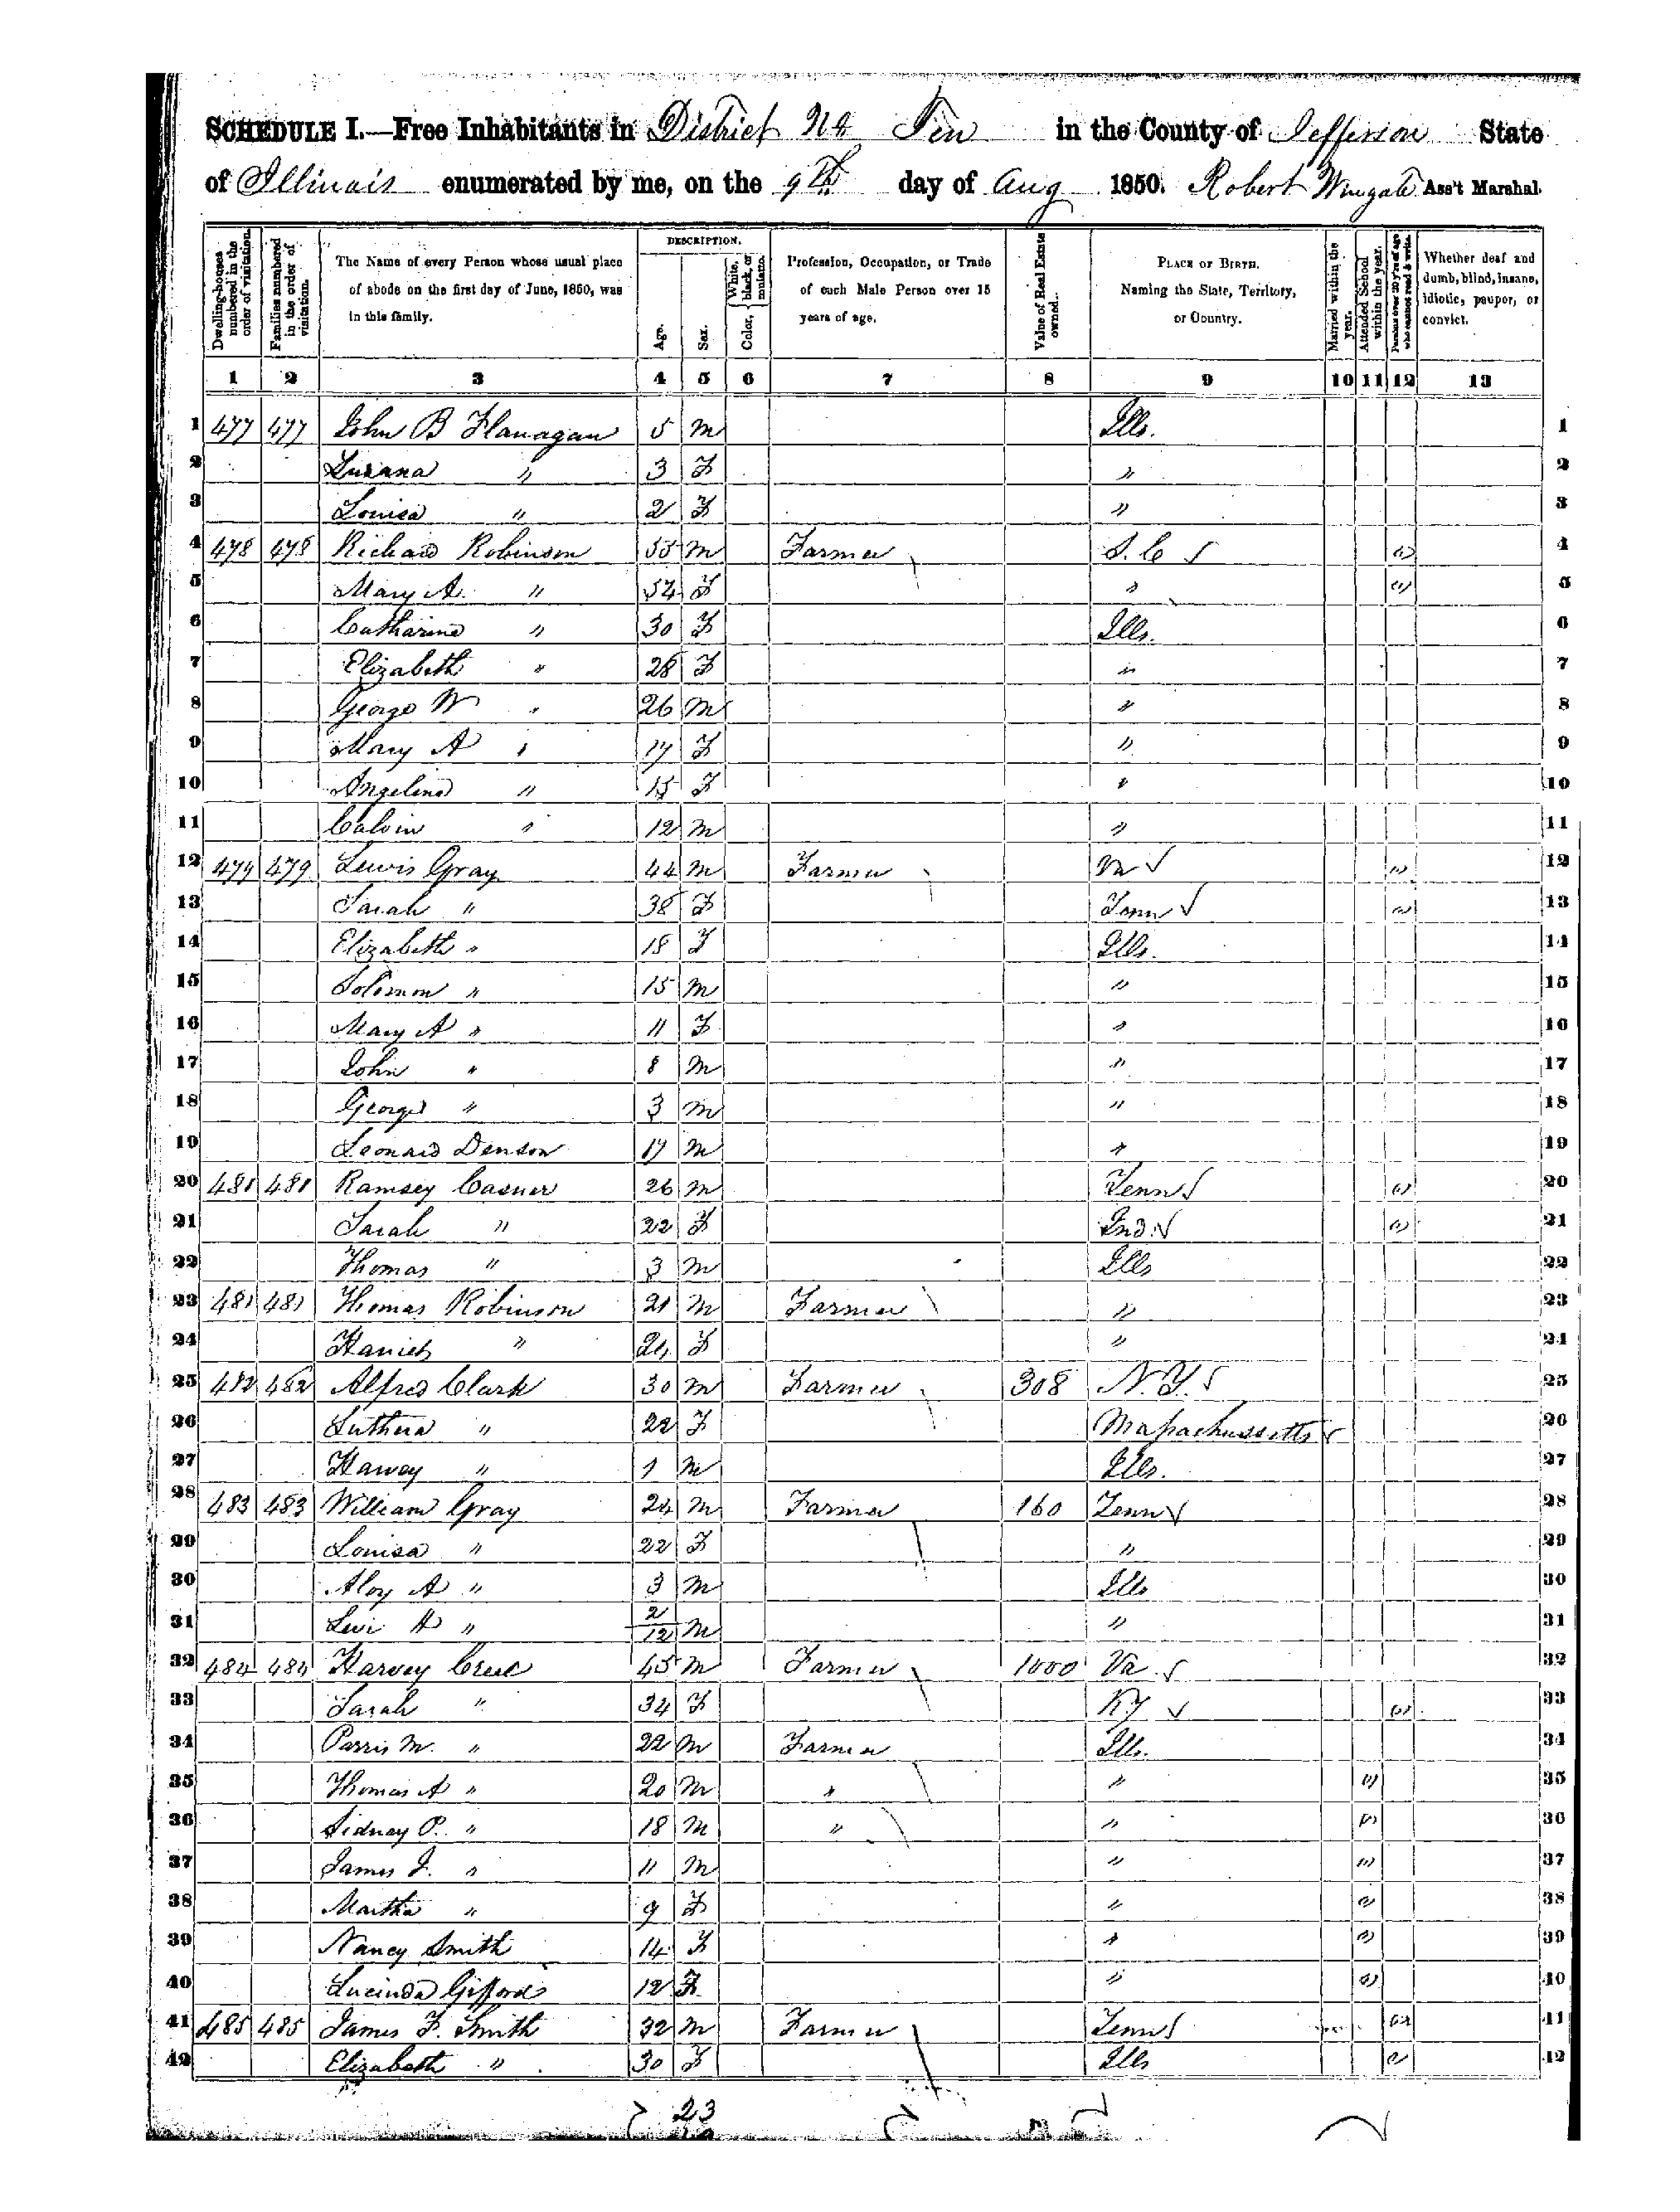 SCHEDULE I.—Free Inhabitants in District No Ten in the County of Jefferson State
of Illinois enumerated by me, on the 9th day of Aug 1850. Robert Wingate Ass't Marshal.
Dwelling-houses numbered in the order of visitation. Families numbered in the order of visitation. The Name of every Person whose usual place of abode on the first day of June, 1850, was in this family. DESCRIPTION. Age. Sex. Color, White, black, or mulatto. Profession, Occupation, or Trade of each Male Person over 15 years of age. Value of Real Estate owned. PLACE OF BIRTH. Naming the State, Territory, or Country. Married within the year. Attended School within the year. Persons over 20 y'rs of age who cannot read & write. Whether deaf and dumb, blind, insane, idiotic, pauper, or convict.
1 2 3 4 5 6 7 8 9 10 11 12 13
1 477 477 John B Flanagan 5 M Ills. 1
2 Lurana " 3 F " 2
3 Louisa " 2 F " 3
4 478 478 Richard Robinson 55 M Farmer S. C 4
5 Mary A. " 54 F " 5
6 Catharine " 30 F Ills. 6
7 Elizabeth " 28 F " 7
8 George W " 26 M " 8
9 Mary A " 17 F " 9
10 Angelina " 15 F " 10
11 Calvin " 12 M " 11
12 479 479 Lewis Gray 44 M Farmer Va 12
13 Sarah " 38 F Tenn 13
14 Elizabeth " 18 F Ills. 14
15 Solomon " 15 M " 15
16 Mary A " 11 F " 16
17 John " 8 M " 17
18 George " 3 M " 18
19 Leonard Denson 17 M " 19
20 481 481 Ramsey Casner 26 M Tenn 20
21 Sarah " 22 F Ind. 21
22 Thomas " 3 M Ills 22
23 481 481 Thomas Robinson 21 M Farmer " 23
24 Hariet " 24 F " 24
25 482 482 Alfred Clark 30 M Farmer 308 N.Y. 25
26 Luthera " 22 F Massachussetts 26
27 Harvey " 1 M Ills. 27
28 483 483 William Gray 24 M Farmer 160 Tenn 28
29 Louisa " 22 F " 29
30 A " 3 M Ills 30
31 Levi H " 2/12 M " 31
32 484 484 Harvey Creel 45 M Farmer 1000 Va. 32
33 Sarah " 34 F KY 33
34 Parris M. " 22 M Farmer Ills. 34
35 Thomas A " 20 M " " 35
36 Sidney P. " 18 M " " 36
37 James J. " 11 M " 37
38 Martha " 9 F " 38
39 Nancy Smith 14 F " 39
40 Lucinda Gifford 12 F " 40
41 485 485 James F. Smith 32 M Farmer Tenn 41
42 Elizabeth " 30 F Ills 42
23